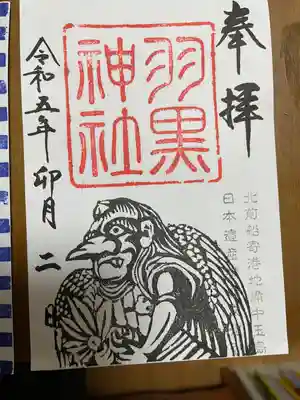 奉拝
羽黒
神社
北前船寄港地
日本遺産
令和五年 卯月 二日